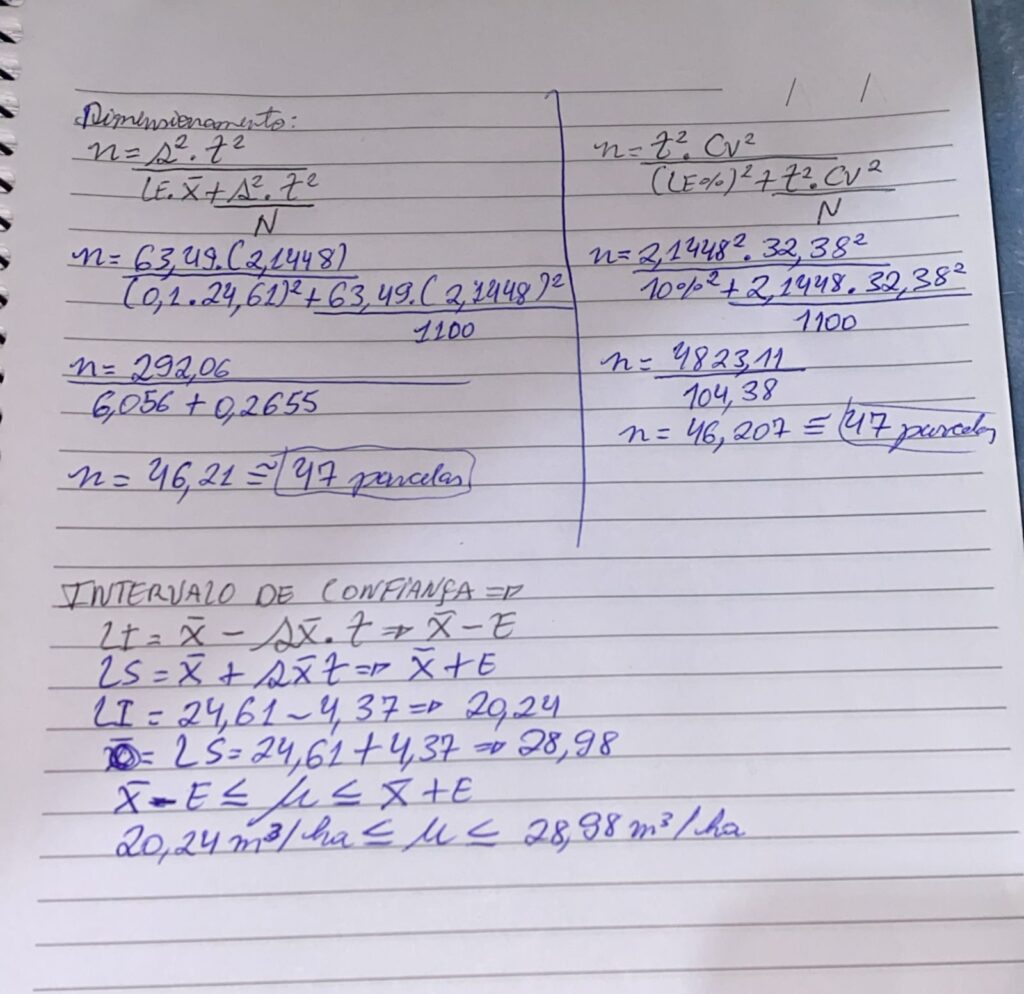 Dimensionamento:
n = s². t²
LE. x̄ + s². t²
N
n = 63,49.(2,1448)
(0,1.24,61)² + 63,49.(2,1448)²
1100
n = 292,06
6,056 + 0,2655
n = 46,21 ≅ 47 parcelas
n = t². CV²
(LE%)² + t². CV²
N
n = 2,1448². 32,38²
10%² + 2,1448. 32,38²
1100
n = 4823,11
104,38
n = 46,207 ≅ 47 parcelas
INTERVALO DE CONFIANÇA ⇒
LI = x̄ - sx̄. t ⇒ x̄ - E
LS = x̄ + sx̄ t ⇒ x̄ + E
LI = 24,61 - 4,37 ⇒ 20,24
= LS = 24,61 + 4,37 ⇒ 28,98
x̄ - E ≤ µ ≤ x̄ + E
20,24 m³/ha ≤ µ ≤ 28,98 m³/ha